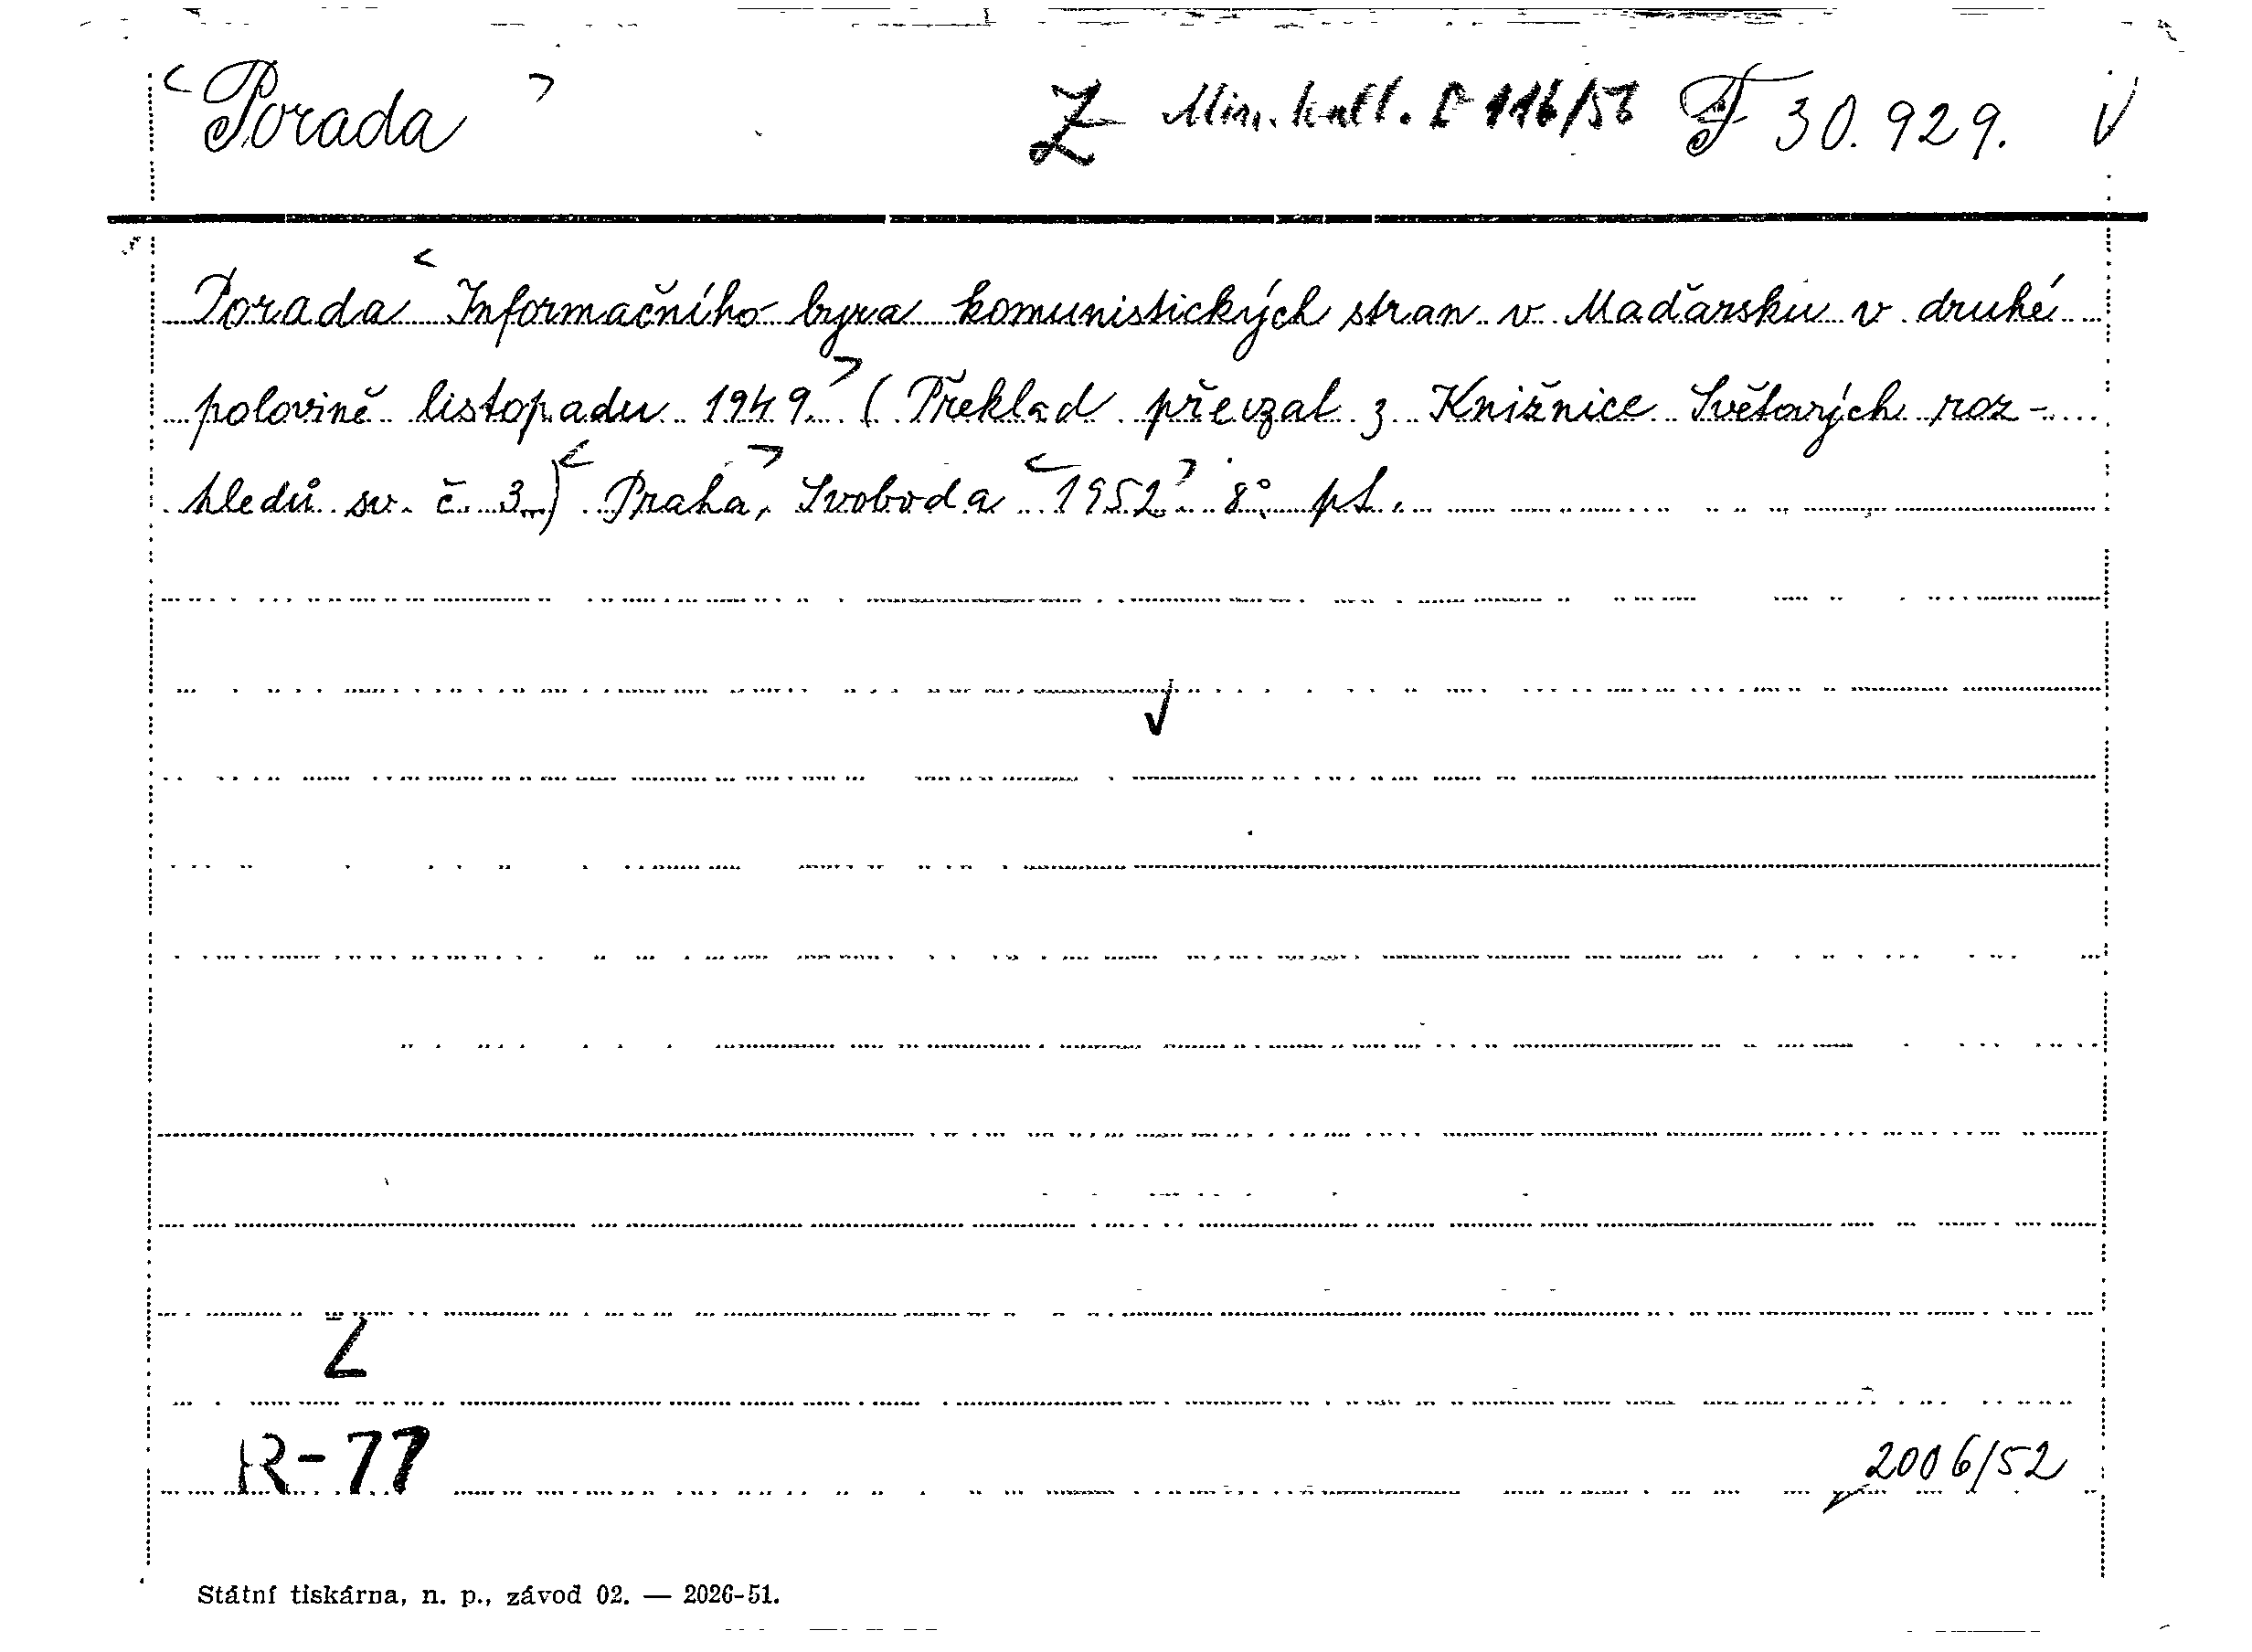 < Porada > Z Min. kult. E 116/56 F 30.929. V
Porada < Informačního byra komunistických stran v Maďarsku v druhé
polovině listopadu 1949. > (Překlad převzat z Knižnice Světových roz-
hledů sv. č. 3.) < Praha, > Svoboda < 1952. > 8° pt.
√
Z
R-77
2006/52
Státní tiskárna, n. p., závod 02. — 2026-51.